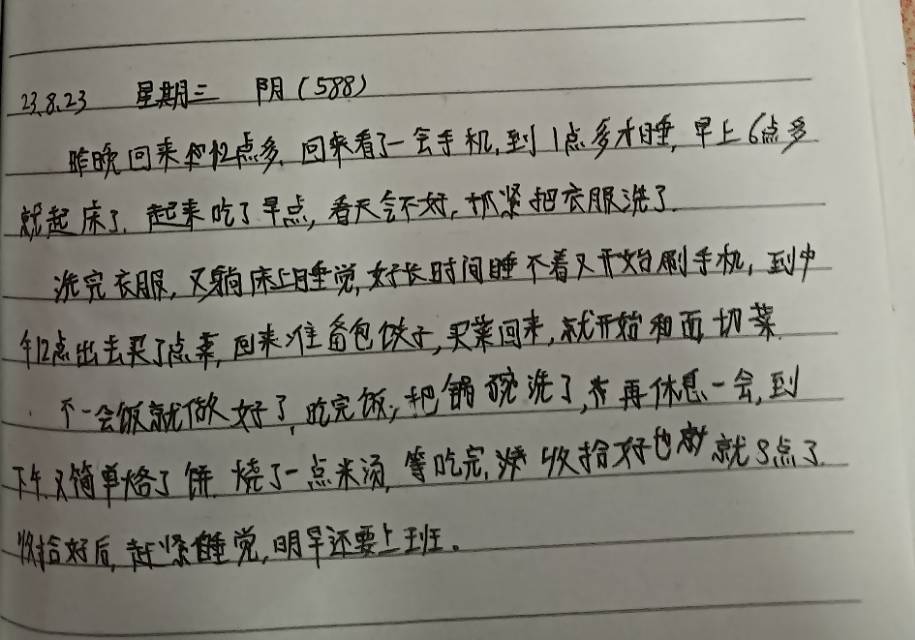 23.8.23 星期三 阴(588)
昨晚回来都12点多,回来看了一会手机,到1点多才睡,早上6点多
就起床了,起来吃了早点,看天气不好,抓紧把衣服洗了.
洗完衣服,又躺床上睡觉,好长时间睡不着又开始刷手机,到中
午12点出去买了点菜,回来准备包饺子,买菜回来,就开始和面,切菜.
不一会饭就做好了,吃完饭,把锅碗洗了,在再休息一会,到
下午.又简单烙了饼.烧了一点米汤,等吃完,收拾好也就8点了.
收拾好后,赶紧睡觉,明早还要上班。